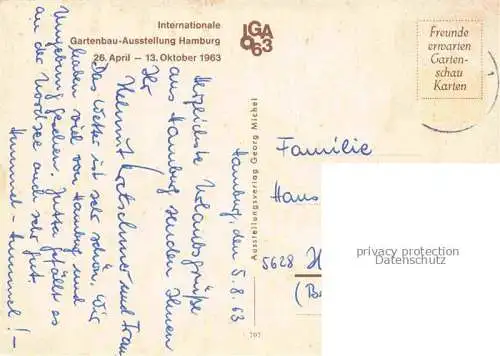 Internationale
Gartenbau-Ausstellung Hamburg
26. April — 13. Oktober 1963
IGA
63
Freunde
erwarten
Garten-
schau
Karten
Hamburg, den 5.8.63
Herzlichste Urlaubsgrüße
aus Hamburg senden Ihnen
Ihr
Helmut Kretschmer und Frau
Das Wetter ist sehr schön, wir
haben viel von Hamburg und
Umgebung gesehen. Jutta gefällt es
an der Nordsee auch sehr gut.
Hummel - Hummel! -
Ausstellungsverlag Georg Michel
707
Familie
Hans
5628 H
(B
privacy protection
Datenschutz